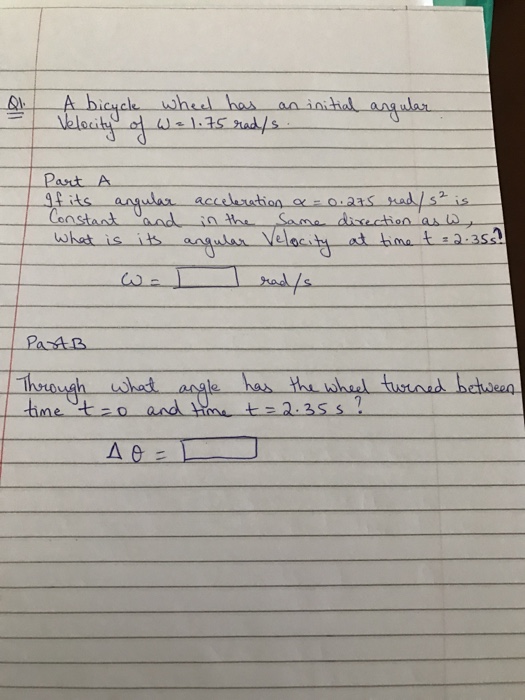 Q1. A bicycle wheel has an initial angular
Velocity of ω = 1.75 rad/s.
Part A
If its angular acceleration α = 0.275 rad/s² is
Constant and in the Same direction as ω,
What is its angular Velocity at time t = 2.35s?
ω = rad/s
Part B
Through what angle has the wheel turned between
time t = 0 and time t = 2.35 s ?
Δθ =